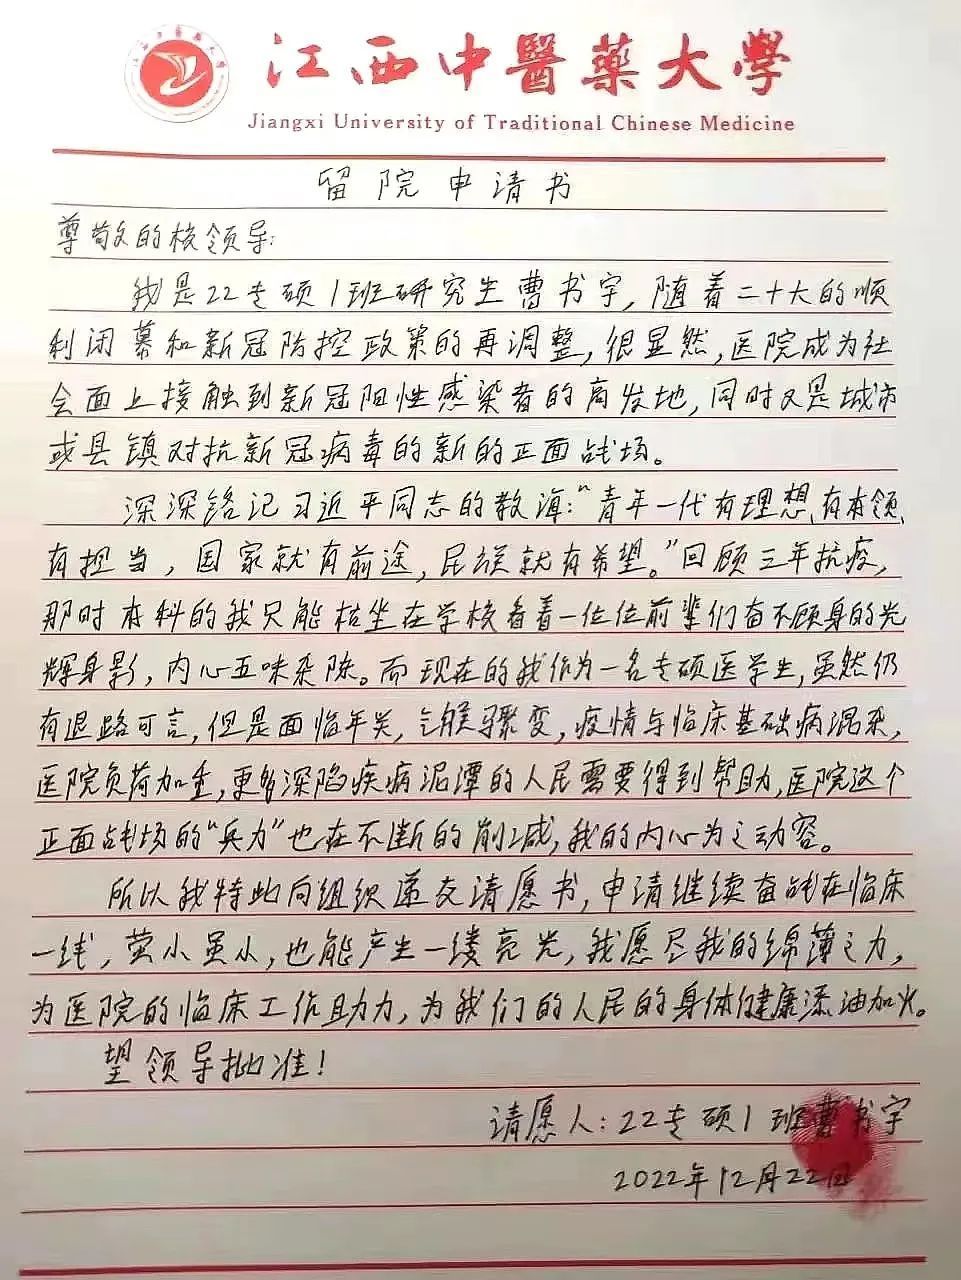 江西中醫藥大學
Jiangxi University of Traditional Chinese Medicine
留院申请书
尊敬的校领导:
我是22专硕1班研究生曹书宇,随着二十大的顺
利闭幕和新冠防控政策的再调整,很显然,医院成为社
会面上接触到新冠阳性感染者的高发地,同时又是城市
或县镇对抗新冠病毒的新的正面战场。
深深铭记习近平同志的教诲:“青年一代有理想、有本领、
有担当,国家就有前途,民族就有希望。”回顾三年抗疫,
那时本科的我只能枯坐在学校看着一位位前辈们奋不顾身的光
辉身影,内心五味杂陈。而现在的我作为一名专硕医学生,虽然仍
有退路可言,但是面临年关,气候骤变,疫情与临床基础病混杂,
医院负荷加重,更多深陷疾病泥潭的人民需要得到帮助,医院这个
正面战场的“兵力”也在不断的削减,我的内心为之动容。
所以我特此向组织递交请愿书,申请继续奋战在临床
一线,萤火虽小,也能产生一缕亮光,我愿尽我的绵薄之力,
为医院的临床工作助力,为我们的人民的身体健康添油加火。
望领导批准!
请愿人:22专硕1班曹书宇
2022年12月22日